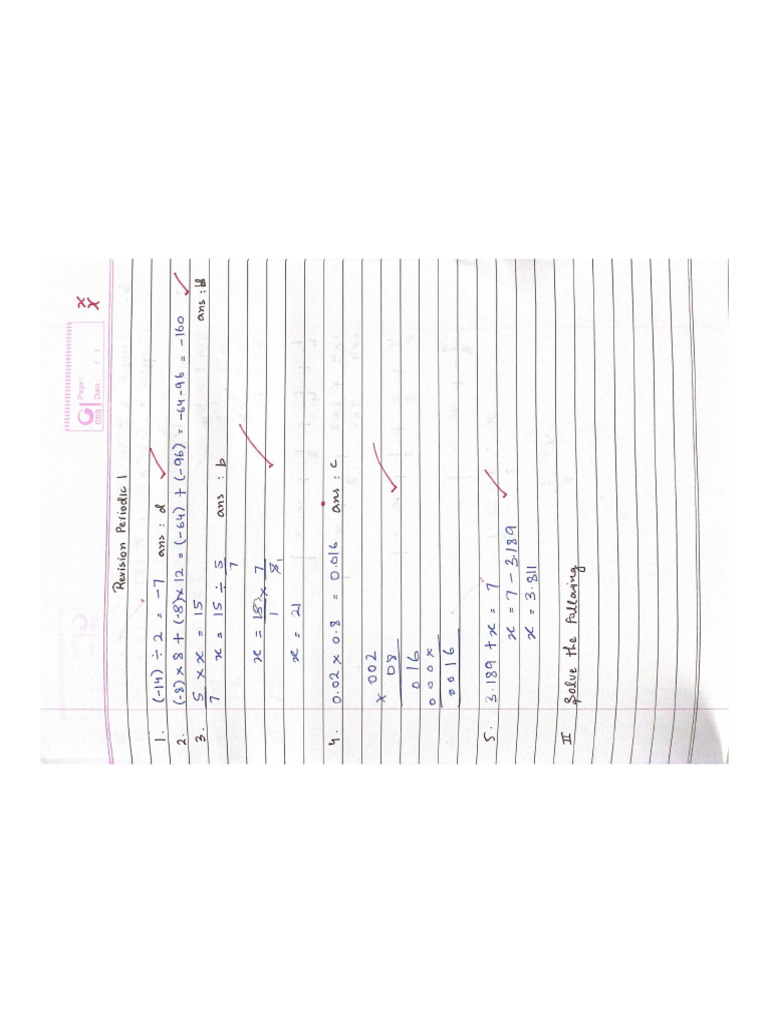 GIIS
Page:
Date: / /
Revision Periodic 1
1. (-14) ÷ 2 = -7 ans : d
2. (-8) × 8 + (-8) × 12 = (-64) + (-96) = -64-96 = -160
ans :
3. 5/7 × x = 15
x = 15 ÷ 5/7 ans : b
x = 15/1 × 7/5
x = 21
4. 0.02 × 0.8 = 0.016 ans : c
002
× 08
016
000×
0016
5. 3.189 + x = 7
x = 7 - 3.189
x = 3.811
II Solve the following